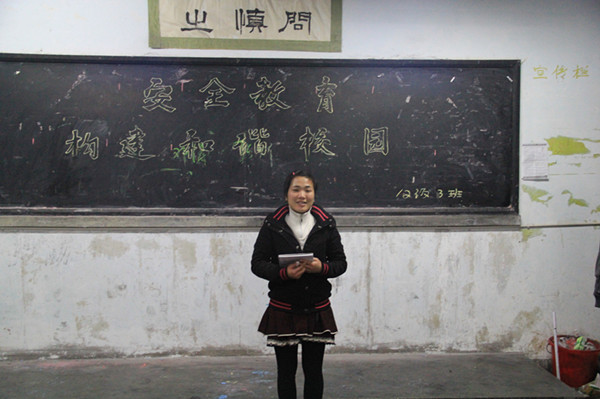 問慎之
安全教育
构建和谐校园
级3班
宣传栏